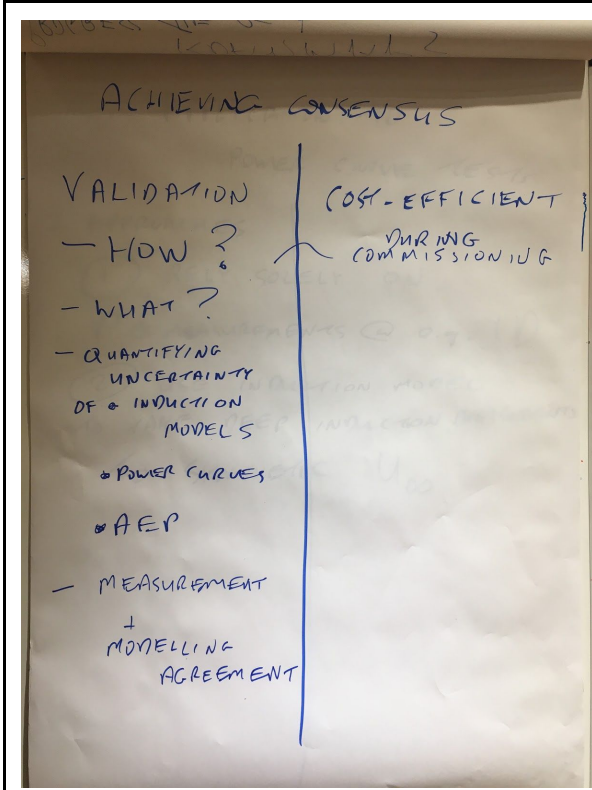 ACHIEVING CONSENSUS
VALIDATION
- HOW?
- WHAT?
- QUANTIFYING
UNCERTAINTY
OF INDUCTION
MODELS
• POWER CURVES
• AEP
- MEASUREMENT
+
MODELLING
AGREEMENT
COST-EFFICIENT
DURING
COMMISSIONING